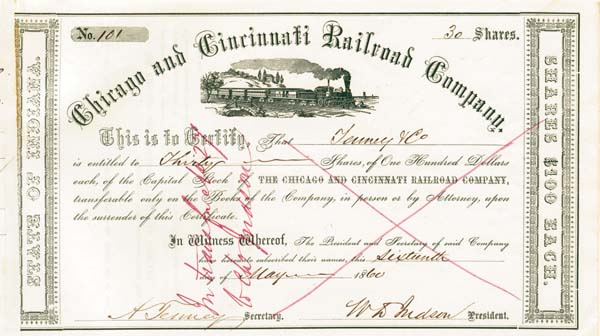 No. 101
30 Shares.
Chicago and Cincinnati Railroad Company.
STATE OF INDIANA.
SHARES $100 EACH.
This is to Certify, That Tenney & Co
is entitled to Thirty Shares, of One Hundred Dollars
each, of the Capital Stock of THE CHICAGO AND CINCINNATI RAILROAD COMPANY,
transferable only on the Books of the Company, in person or by Attorney, upon
the surrender of this Certificate.
In Witness Whereof, The President and Secretary of said Company
have hereunto subscribed their names, this Sixteenth
day of May 1860
A. Tenney Secretary. W D Judson President.